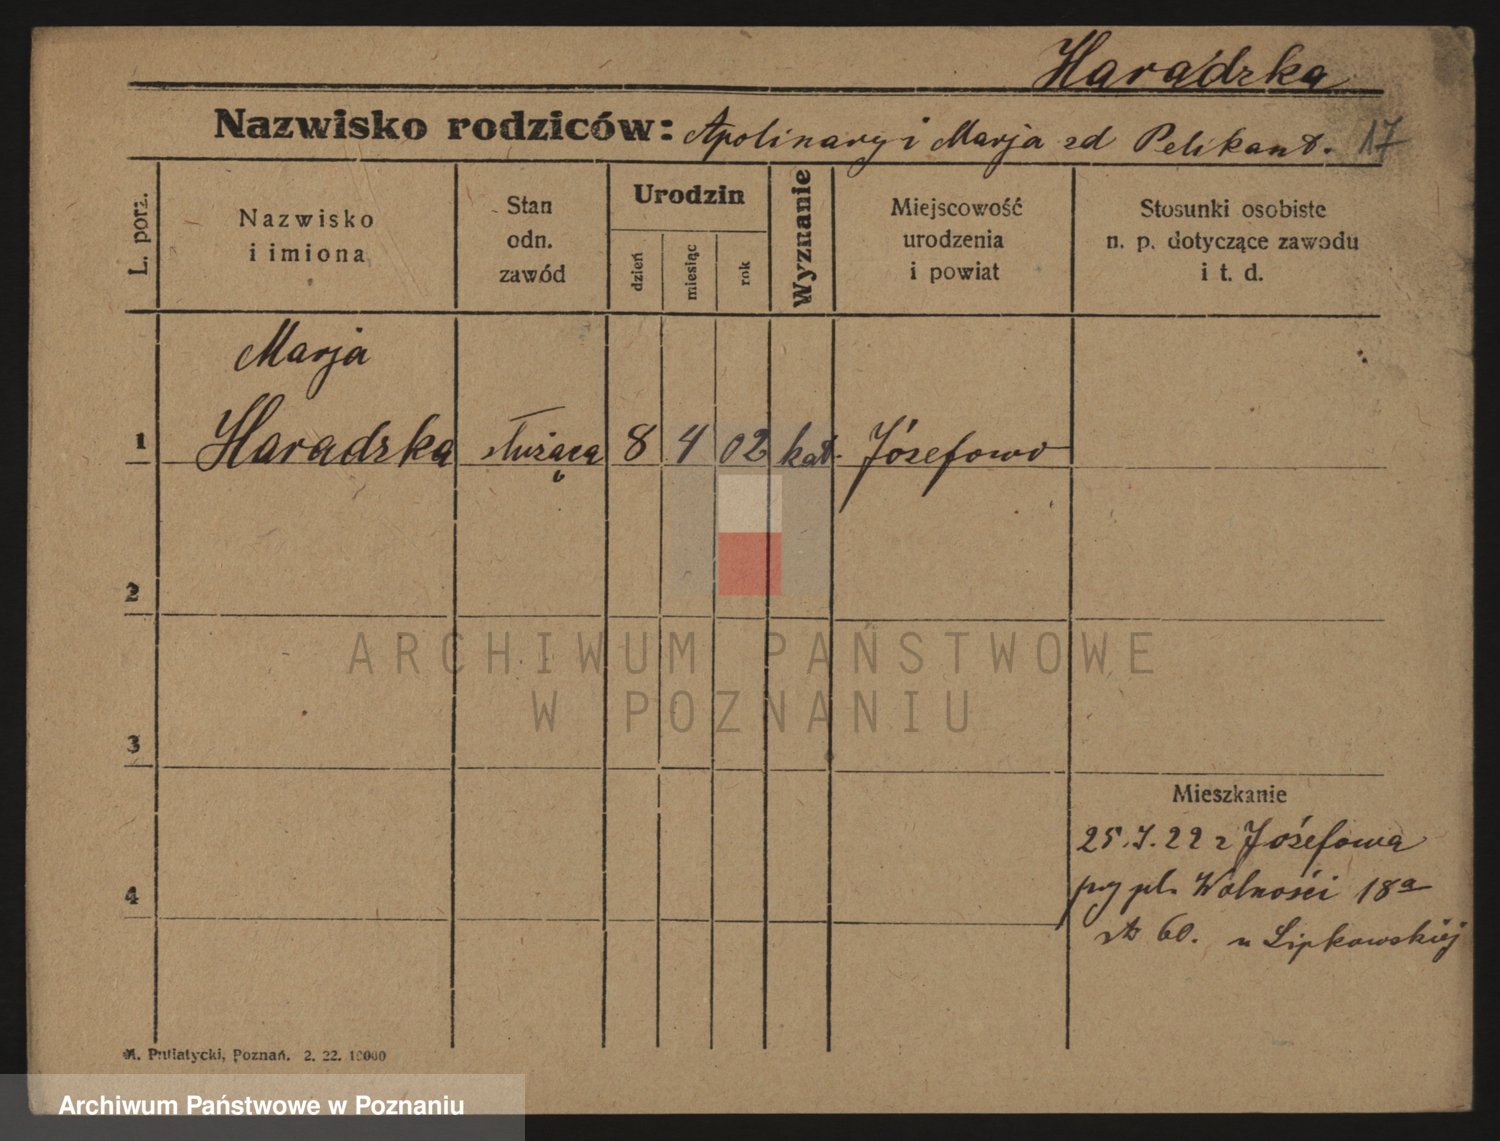 Haradzka
Nazwisko rodziców: Apolinary i Marja zd Pelikant. 17
L. porz.
Nazwisko
i imiona
Stan
odn.
zawód
Urodzin
dzień
miesiąc
rok
Wyznanie
Miejscowość
urodzenia
i powiat
Stosunki osobiste
n. p. dotyczące zawodu
i t. d.
Marja
1 Haradzka służąca 8 4 02 kat. Józefowo
2
3
4
Mieszkanie
25.7.22 z Józefowa
przy pl. Wolności 18a
u Lipkowskiej
60.
ARCHIWUM PAŃSTWOWE
W POZNANIU
M. Poznań. 2. 22. 10000
Archiwum Państwowe w Poznaniu